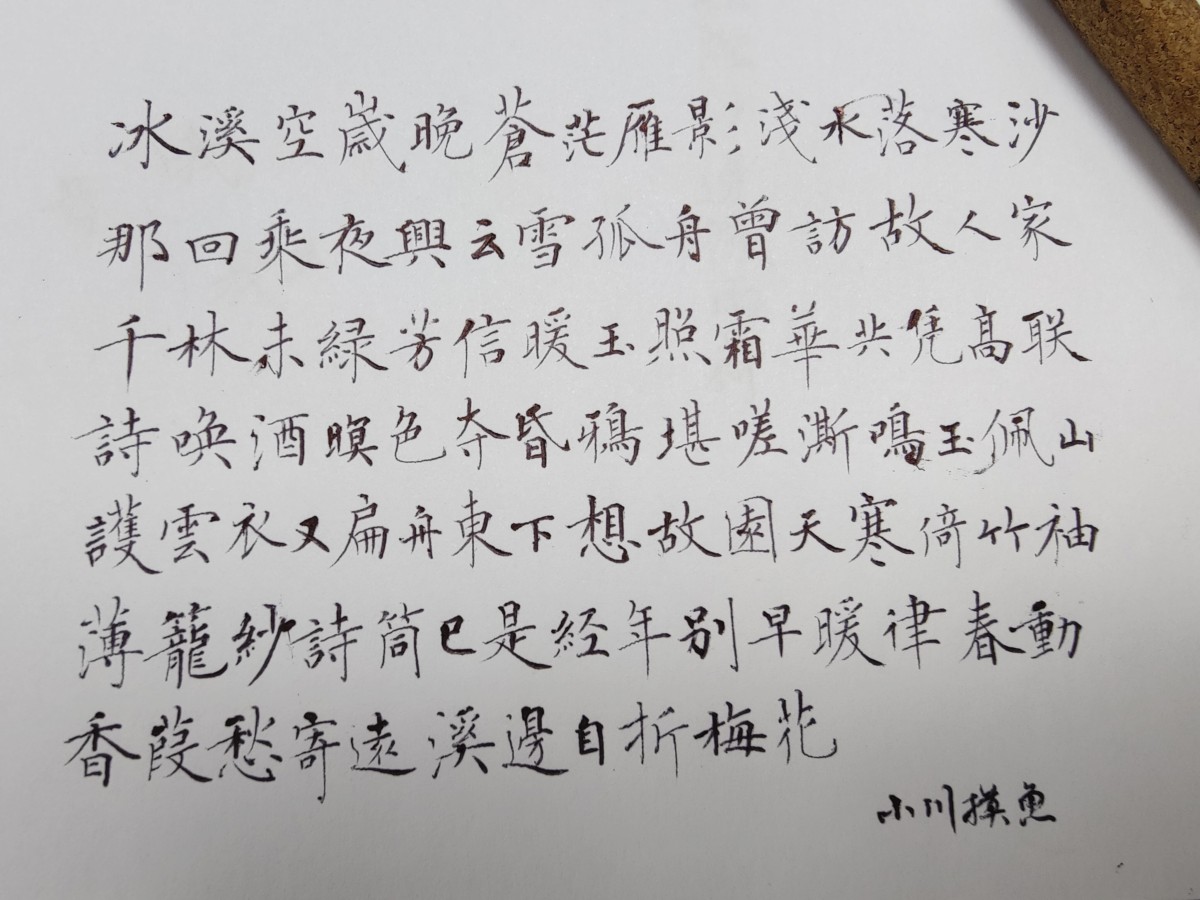 冰溪空歲晚蒼茫雁影淺水落寒沙
那回乘夜興云雪孤舟曾訪故人家
千林未緑芳信暖玉照霜華共凭高联
詩喚酒暝色夺昏鴉堪嗟澌鳴玉佩山
護雲衣又扁舟東下想故園天寒倚竹袖
薄籠紗詩筒已是经年别早暖律春動
香葭愁寄遠溪邊自折梅花
小川摸魚